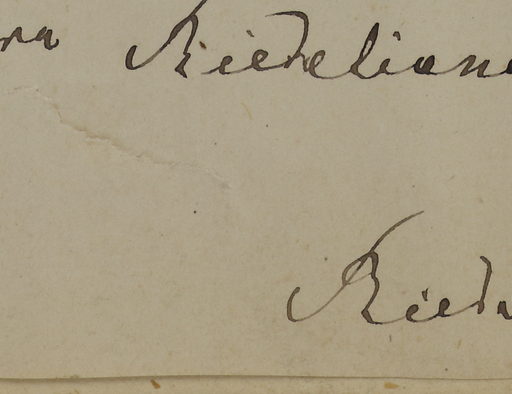 ra Riedeliana
Riede